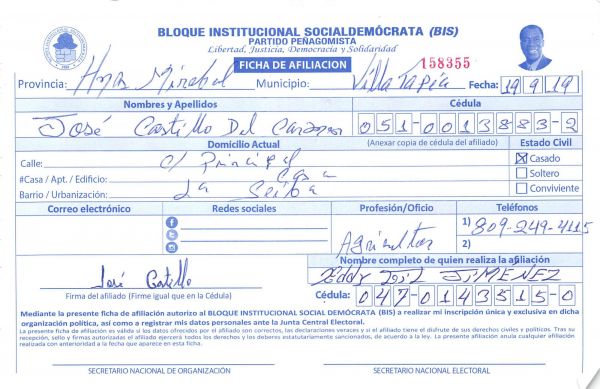 BLOQUE INSTITUCIONAL SOCIALDEMÓCRATA (BIS)
PARTIDO PEÑAGOMISTA
Libertad, Justicia, Democracia y Solidaridad
FICHA DE AFILIACION 158355
Provincia: Hnas Mirabal Municipio: Villa Tapia Fecha: 19/9/19
Nombres y Apellidos Cédula
José Castillo Del 051-0013883-2
Domicilio Actual (Anexar copia de cédula del afiliado) Estado Civil
Calle: c/ Principal Casado
#Casa / Apt. / Edificio: Casa Soltero
Barrio / Urbanización: La Seiba Conviviente
Correo electrónico Redes sociales Profesión/Oficio Teléfonos
1) 809-249-4115
Agricultor 2)
Nombre completo de quien realiza la afiliación
José Castillo Eddy Gil JIMENEZ
Firma del afiliado (Firme igual que en la Cédula) Cédula: 047-0143515-0
Mediante la presente ficha de afiliación autorizo al BLOQUE INSTITUCIONAL SOCIAL DEMÓCRATA (BIS) a realizar mi inscripción única y exclusiva en dicha
organización política, así como a registrar mis datos personales ante la Junta Central Electoral.
La presente ficha de afiliación es válida si los datos ofrecidos por el afiliado son correctos, las declaraciones veraces y si el afiliado tiene el disfrute de sus derechos civiles y políticos. Tras su
recepción, sello y firmas autorizadas el afiliado ejercerá todos los derechos y los deberes estatutariamente sancionados, de acuerdo a la ley. La presente afiliación anula cualquiera
realizada con anterioridad a la fecha que aparece en esta ficha.
SECRETARIO NACIONAL DE ORGANIZACIÓN SECRETARIO NACIONAL ELECTORAL